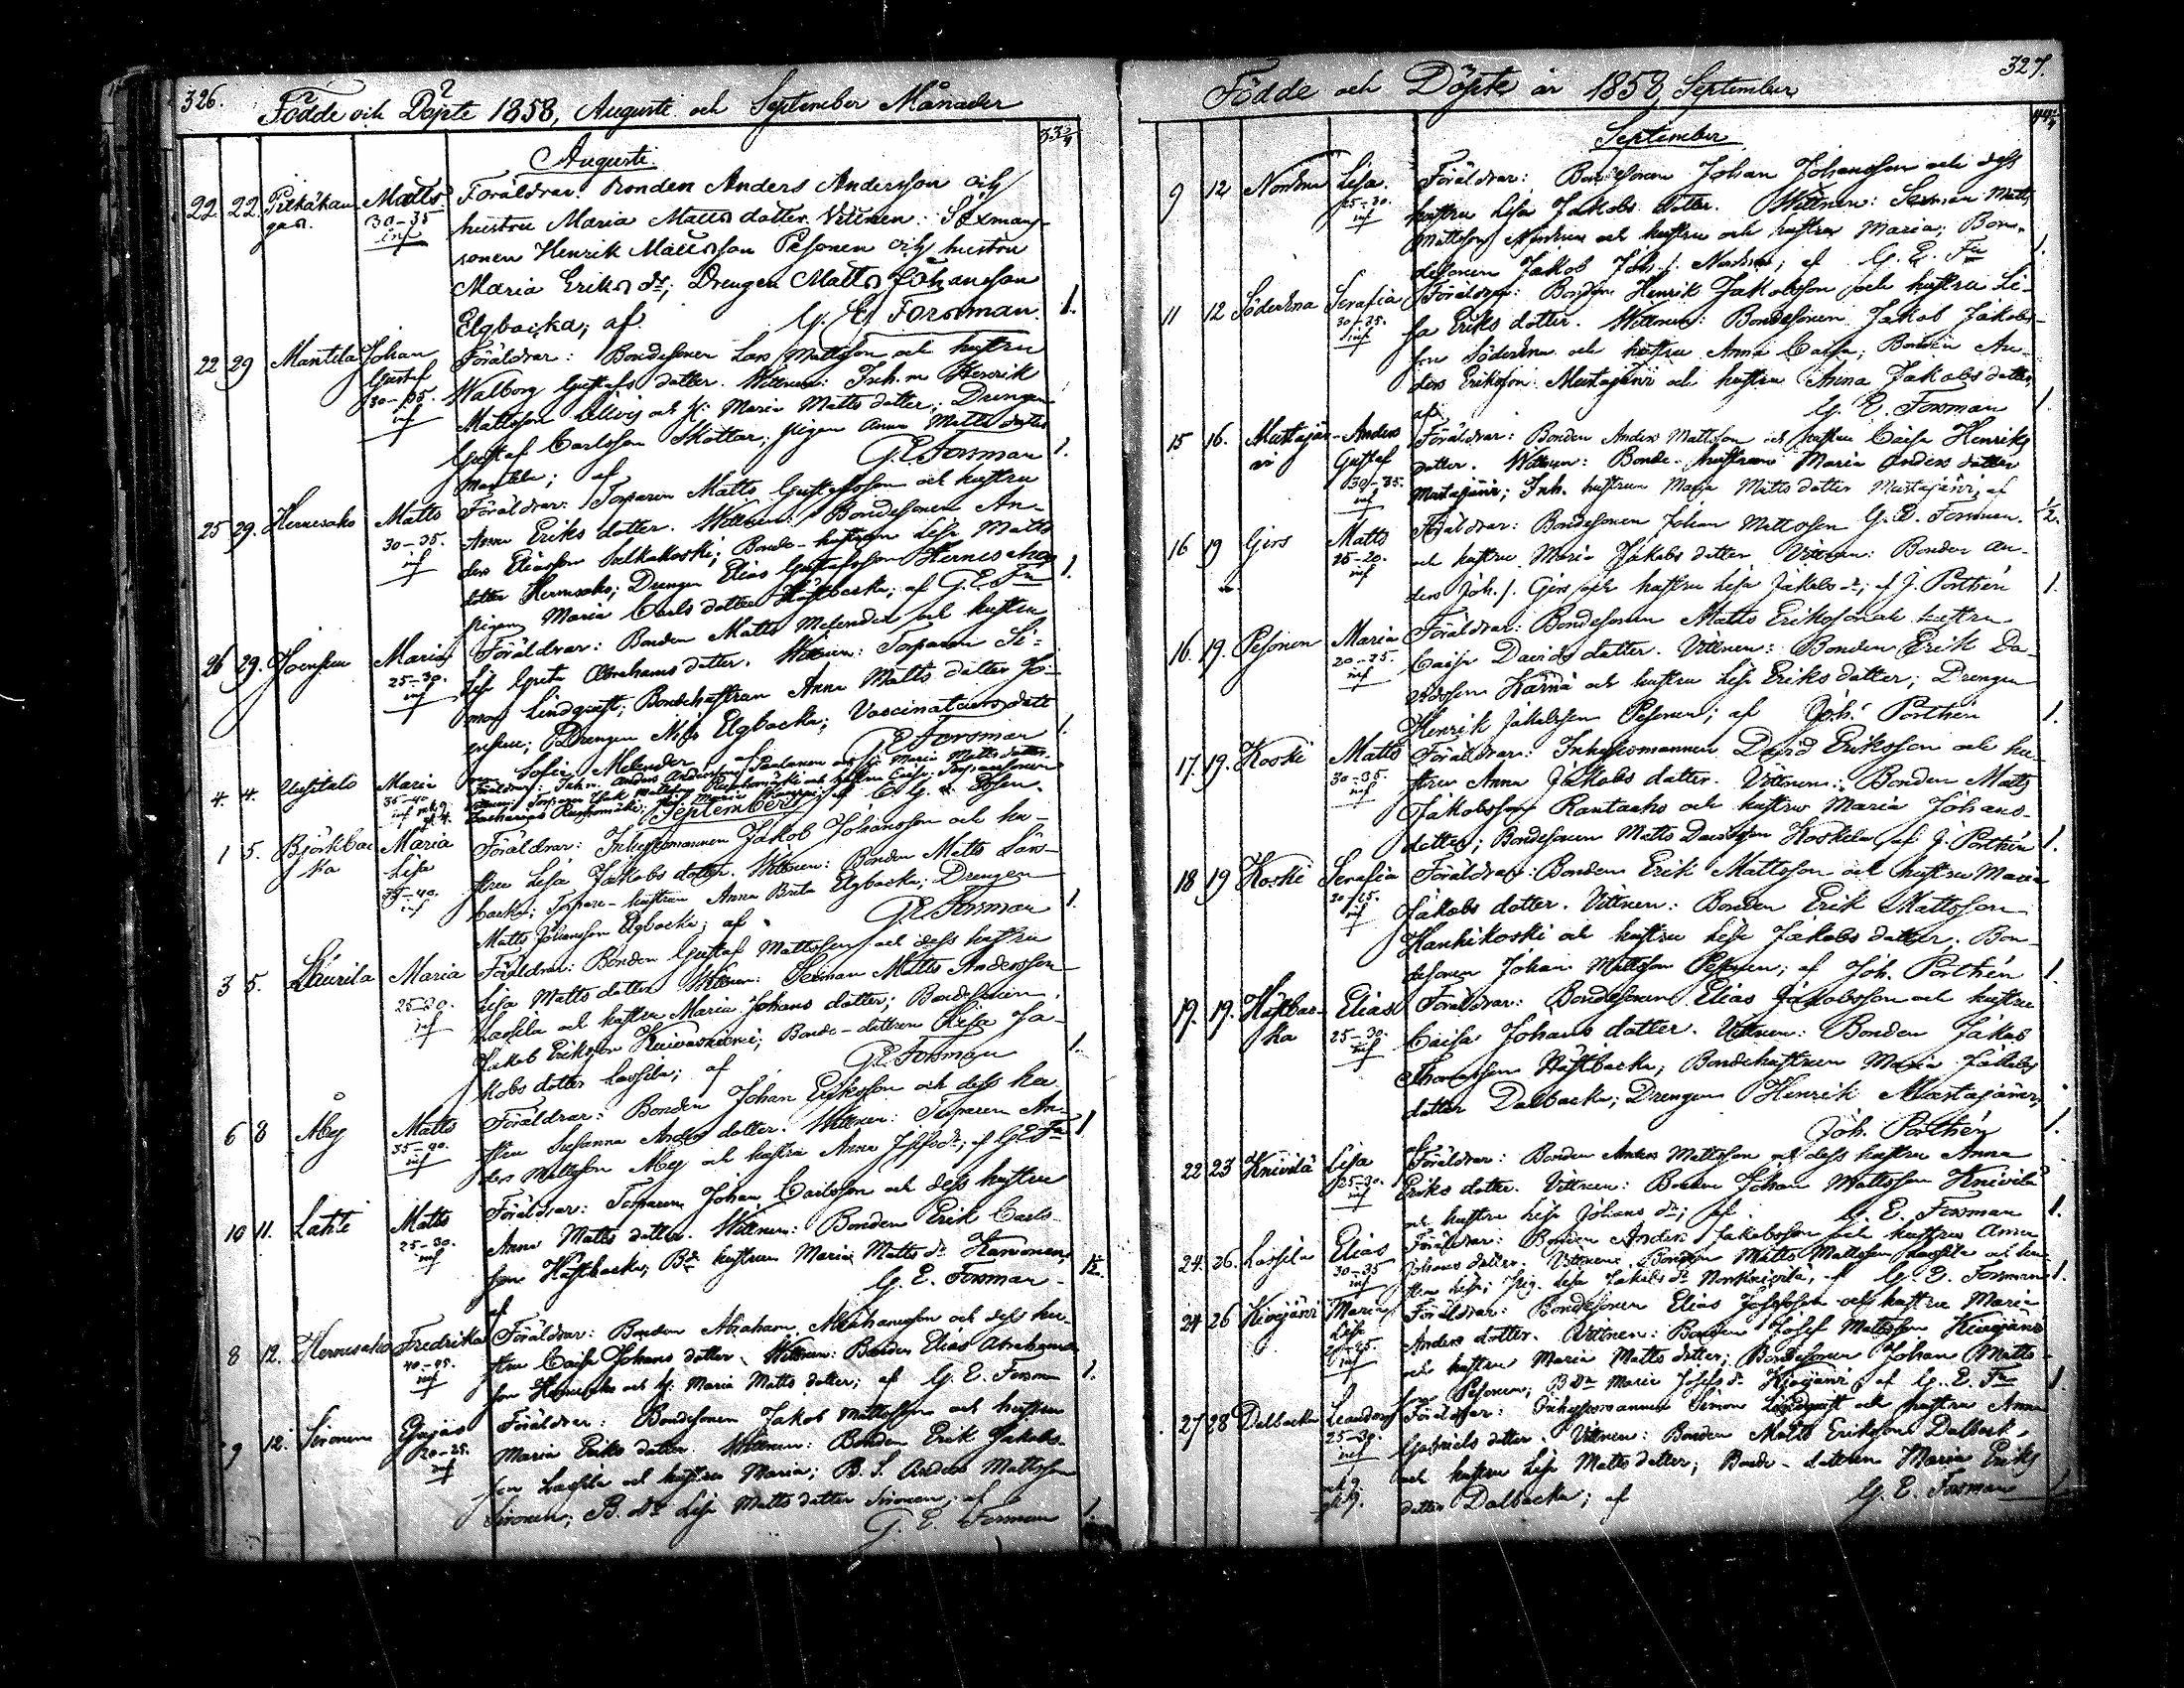 326.
Födde och Döpte 1858, Augusti och September Månader
Augusti.
22 22 Pitkäkan- Matts Föräldrar: Bonden Anders Andersson och
gas. 30-35 hustru Maria Matts dotter. Vittnen: Sexmans-
inf sonen Henrik Mattsson Pesonen och hustru
Maria Eriks dr; Drengen Matts Johansson
Elgbacka; af G. E. Forsman. 1.
22 29 Mantila Johan Föräldrar: Bondesonen Lars Mattsson och hustru
Gustaf Walborg Gustafs dotter. Wittnen: Inh.n Henrik
30-35. Mattsson och h: Maria Matts dotter; Drengen
inf Gustaf Carlsson Skottar; pigan Anna Matts dotter
Mantila; af G.E. Forsman 1.
25 29. Hernesaho Matts Föräldrar: Torparen Matts Gustafsson och hustru
30-35. Anna Eriks dotter. Wittnen: Bondesonen An-
inf ders Eliasson Salkakoski; Bonde-hustrun Lisa Matts
dotter Hernesaho; Drengen Elias Gustafsson Hernesaho
pigan Maria Carls dotter Häftbacka; af G.E. Fn 1.
26 29. Maria Föräldrar: Bonden Matts Melender och hustru
25-30. Lisa Greta Abrahams dotter. Wittnen: Torparen Si-
inf mon Lindqvist; Bondehustrun Anna Matts dotter
Drengen Nils Elgbacka; Vaccinateurs dott
Sofia Melender af G.E. Forsman 1.
4. 4. Uusitalo Maria Föräldrar: Inh.n Anders Andersson och h: Maria Matts dotter
35-40 Torparen Isak Mattsson och hustru Caisa;
inf Zacharias
September
1 5. Björkbac Maria Föräldrar: Inhysesmannen Jakob Johansson och hu-
ka Lisa stru Lisa Jakobs dotter. Wittnen: Bonden Matts Lån-
35-40. backa; Torpare-hustrun Anna Brita Elgbacka; Drengen
inf Matts Johansson Elgbacka; af G.E. Forsman 1.
3 5. Laurila Maria Föräldrar: Bonden Gustaf Mattsson och dess hustru
25-30. Lisa Matts dotter Wittnen: Sexman Matts Andersson
inf Lassila och hustru Maria Johans dotter; Bondesonen
Jakob Eriksson Bonde-dottren Lisa Ja-
kobs dotter Lassila; af G.E. Forsman 1.
6 8 Matts Föräldrar: Bonden Johan Eriksson och dess hu
35-40. stru Susanna Anders dotter. Wittnen: Torparen An-
inf ders Mattsson och hustru Anna Josefs dr; af G.E. Fn 1
10 11. Lahti Matts Föräldrar: Torparen Johan Carlsson och dess hustru
25-30. Anna Matts dotter. Wittnen: Bonden Erik Carls-
inf son Häftbacka; Bde hustrun Maria Matts dr
af G. E. Forsman 1/2.
8 12. Hernesaho Fredrika Föräldrar: Bonden Abraham Abrahamsson och dess hu-
40-45. stru Caisa Johans dotter. Wittnen: Bonden Elias Abrahams
inf son Hernesaho och h: Maria Matts dotter; af G. E. Forsman 1.
9 12. Sironen Föräldrar: Bondesonen Jakob Mattsson och hustru
20-25. Maria Eriks dotter. Wittnen: Bonden Erik Jakobs-
inf son Lassila och hustru Maria; B. S. Anders Mattsson
Sironen; B. dr Lisa Matts dotter Sironen; af
G. E. Forsman 1.
327.
Födde och Döpte år 1858, September
September
9 12 Lisa. Föräldrar: Bondesonen Johan Johansson och dess
25-30. hustru Lisa Jakobs dotter. Wittnen: Sexman Matts
inf Mattsson och hustru och hustru Maria; Bon-
desonen Jakob Joh. s. af G. E. Fn 1.
11 12 Serafia Föräldrar: Bonden Henrik Jakobsson och hustru Li-
30-35. sa Eriks dotter. Wittnen: Bondesonen Jakob Jakobs-
inf son och hustru Anna Caisa; Bonden An-
ders Eriksson Mustajärvi och hustru Anna Jakobs dotter
af G. E. Forsman 1.
15 16. Mustajär- Anders Föräldrar: Bonden Anders Mattsson och hustru Caisa Henriks
vi Gustaf dotter. Wittnen: Bonde-hustrun Maria Anders dotter
30-35. Mustajärvi; Inh. hustrun Maria Matts dotter Mustajärvi, af
inf G. E. Forsman. 1/2.
16 19 Girs Matts Föräldrar: Bondesonen Johan Mattsson
25-20. och hustru Maria Jakobs dotter Vittnen: Bonden An-
inf ders Joh. s. Girs och hustru Lisa Jakobs dr; af J. Porthén 1.
16. 19. Pesonen Maria Föräldrar: Bondesonen Matts Eriksson och hustru
20-25. Caisa Davids dotter. Vittnen: Bonden Erik Da-
inf vidsson Kärnä och hustru Lisa Eriks dotter; Drengen
Henrik Jakobsson Pesonen; af Joh. Porthén 1.
17. 19. Koski Matts Föräldrar: Inhysesmannen David Eriksson och hu-
30-35. stru Anna Jakobs dotter. Vittnen: Bonden Matts
inf Jakobsson Rantaaho och hustru Maria Johans-
dotter; Bondesonen Matts Davidsson Koskela, af J. Porthén 1.
18 19 Koski Serafia Föräldrar: Bonden Erik Mattsson och hustru Maria
20-25. Jakobs dotter. Vittnen: Bonden Erik Mattsson
inf Kankikoski och hustru Lisa Jakobs dotter. Bon-
desonen Johan Mattsson Pesonen; af Joh. Porthén 1.
19. 19. Häftbac- Elias Föräldrar: Bondesonen Elias Jakobsson och hustru
ka 25-30. Caisa Johans dotter. Vittnen: Bonden Jakob
inf Thomasson Häftbacka; Bondehustrun Maria Jakobs
dotter Dalbacka; Drengen Henrik Mustajärvi,
af Joh. Porthén 1.
22 23 Knivilä Lisa Föräldrar: Bonden Anders Mattsson och dess hustru Anna
25-30. Eriks dotter. Vittnen: Bonden Johan Mattsson Knivilä
inf och hustru Lisa Johans dr; af G. E. Forsman 1.
24. 26. Lassila Elias Föräldrar: Bonden Anders Jakobsson och hustru Anna
30-35 Johans dotter. Vittnen: Bonden Matts Mattsson Lassila och hu-
inf stru Lisa; Pig. Lisa Jakobs dr af G. E. Forsman 1.
24 26 Kivijärvi Maria Föräldrar: Bondesonen Elias Josefsson och hustru Maria
Lisa Anders dotter. Vittnen: Bonden Josef Mattsson Kivijärvi
inf och hustru Maria Matts dotter; Bondesonen Johan Matts-
son Pesonen; B dr Maria Josefs dr Kivijärvi, af G. E. Fn 1.
27 28 Dalbacka Leander Föräldrar: Inhysesmannen Simon Lindqvist och hustru Anna
25-30. Gabriels dotter. Vittnen: Bonden Matts Eriksson Dalback,
inf och hustru Lisa Matts dotter; Bonde-dottren Maria Eriks
dotter Dalbacka; af G. E. Forsman 1